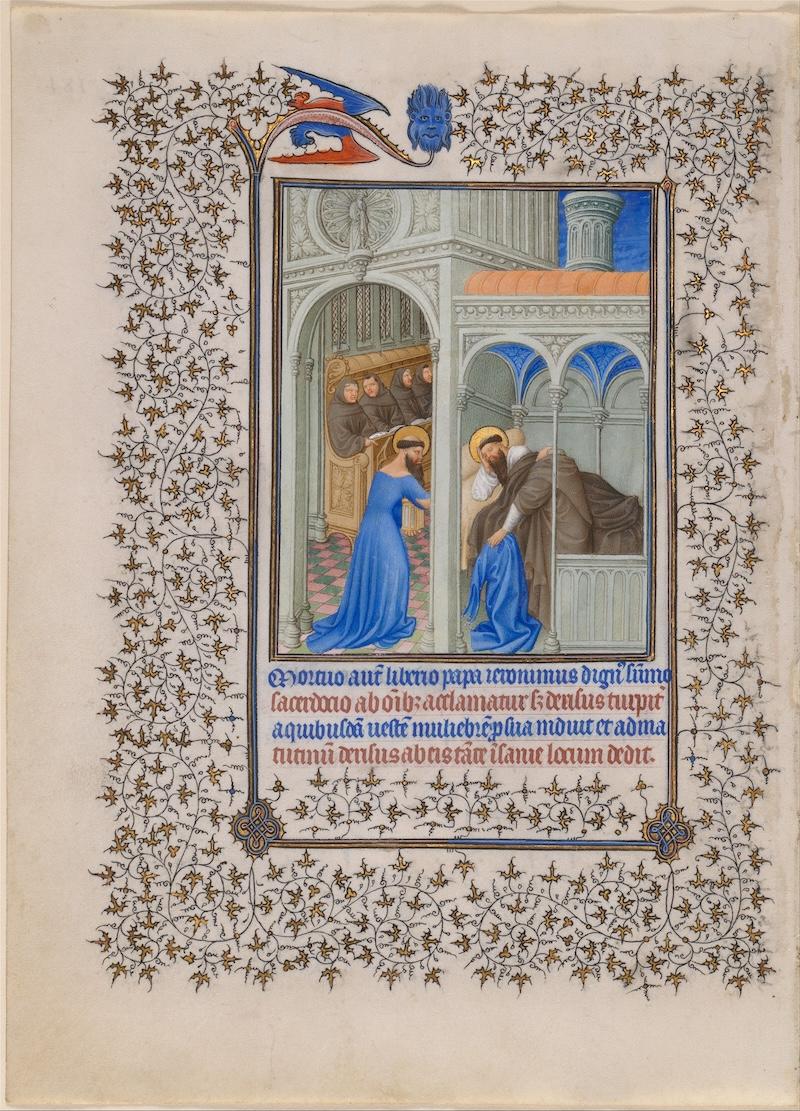 Mortuo aūt liberio papa ieronimus dign⁹ sūmo
sacerdocio ab oīb; acclamatur s; derisus turpit̄
a quibusdā vestē muliebrē p sua induit et ad ma
tutinū derisus ab eis tāte īsanie locum dedit.